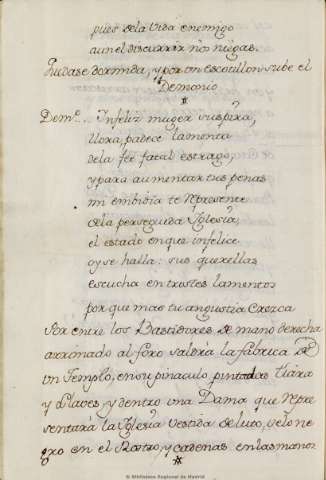 pues de la vida enemigo
aun el discurrir nos niegas.
Quedase dormida, y por un escotillon sube el
Demonio
Dem.º... Infeliz muger suspira,
llora, padece lamenta
de la fee fatal estrago,
y para aumentar tus penas
mi embidia te represente
de la perseguida Iglesia,
el estado en que infelice
oy se halla: sus querellas
escucha en tristes lamentos
por que mas tu angustia crezca
Por entre los Bastidores de mano derecha
arrimado al foro saldrá la fabrica de
un Templo, en su pinaculo pintadas tiara
y llaves y dentro una Dama que repre
sentará la Iglesia vestida de luto, velo ne
gro en el Rostro, y cadenas en las manos
© Biblioteca Regional de Madrid